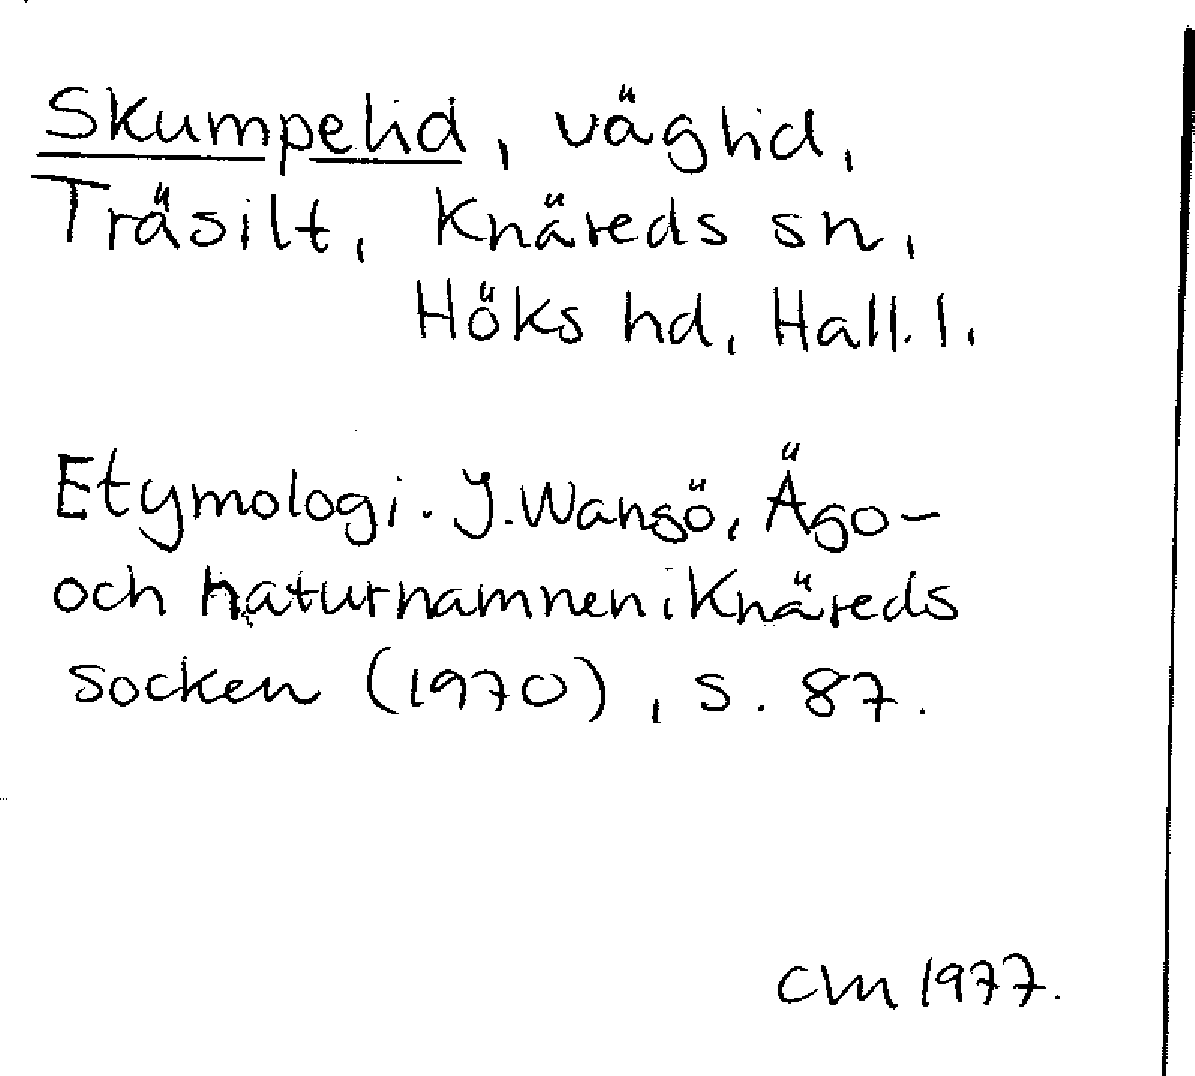 Skumpelid, väglid,
Träsilt, Knäreds sn,
Höks hd, Hall. l.
Etymologi. J. Wansö, Ägo-
och naturnamnen i Knäreds
socken (1970), s. 87.
CM 1977.